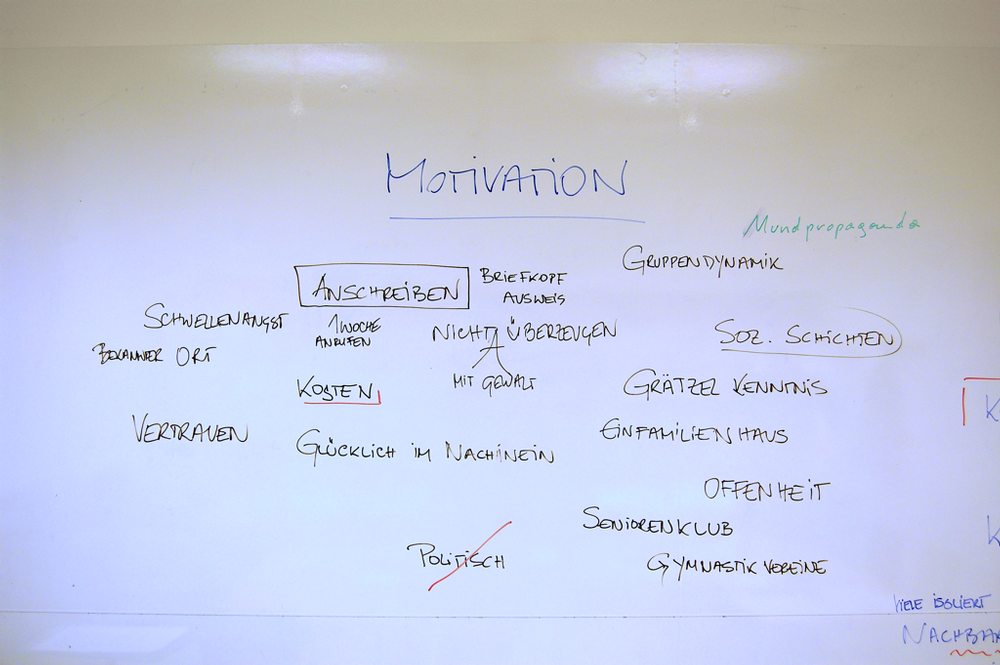 MOTIVATION
Mundpropaganda
GRUPPENDYNAMIK
ANSCHREIBEN
BRIEFKOPF
AUSWEIS
SCHWELLENANGST
1 WOCHE
ANRUFEN
NICHT ÜBERZEUGEN
MIT GEWALT
SOZ. SCHICHTEN
BEKANNER ORT
KOSTEN
GRÄTZEL KENNTNIS
VERTRAUEN
GLÜCKLICH IM NACHINEIN
EINFAMILIENHAUS
OFFENHEIT
SENIORENKLUB
POLITISCH
GYMNASTIK VEREINE
VIELE ISOLIERT
NACHBAR